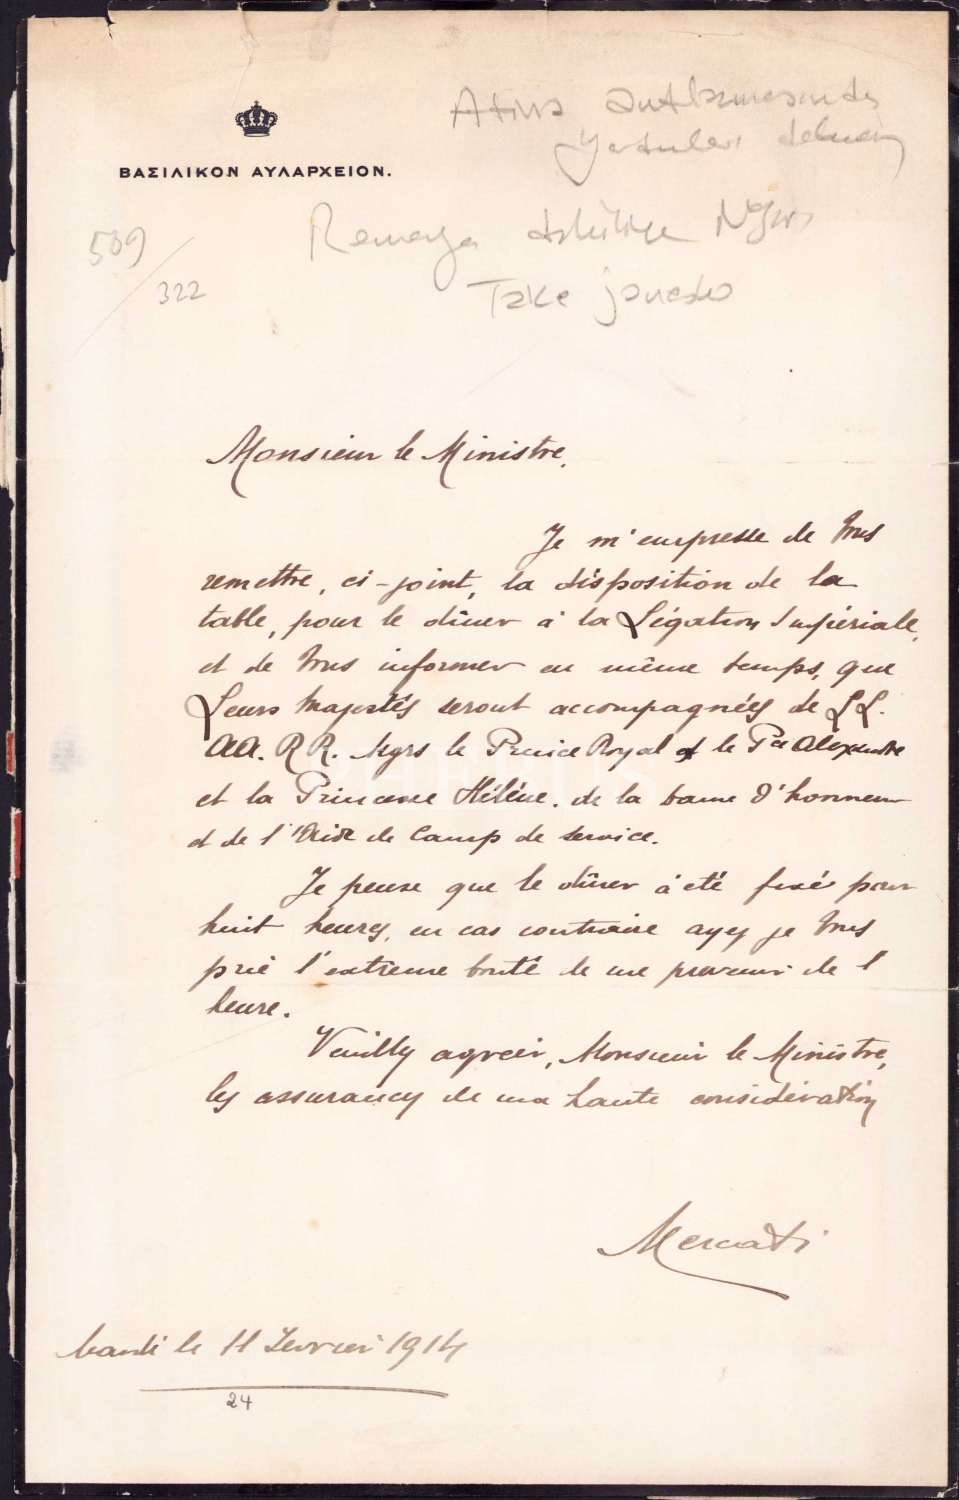 ΒΑΣΙΛΙΚΟΝ ΑΥΛΑΡΧΕΙΟΝ.
509
322
Take
Monsieur le Ministre,
Je m'empresse de Vous
remettre, ci-joint, la disposition de la
table, pour le dîner à la Légation Impériale,
et de Vous informer en même temps, que
Leurs Majestés seront accompagnées de LL.
AA. RR. Mgrs le Prince Royal et le Pce Alexandre
et la Princesse Hélène, de la Dame d'honneur
et de l'Aide de Camp de service.
Je pense que le dîner à été fixé pour
huit heures, en cas contraire ayez je Vous
prie l'extrême bonté de me prevenir de l
heure.
Veuillez agréer, Monsieur le Ministre,
les assurances de ma haute considération
Mercati
Mardi le 11 Fevrier 1914
24
PHEBUS